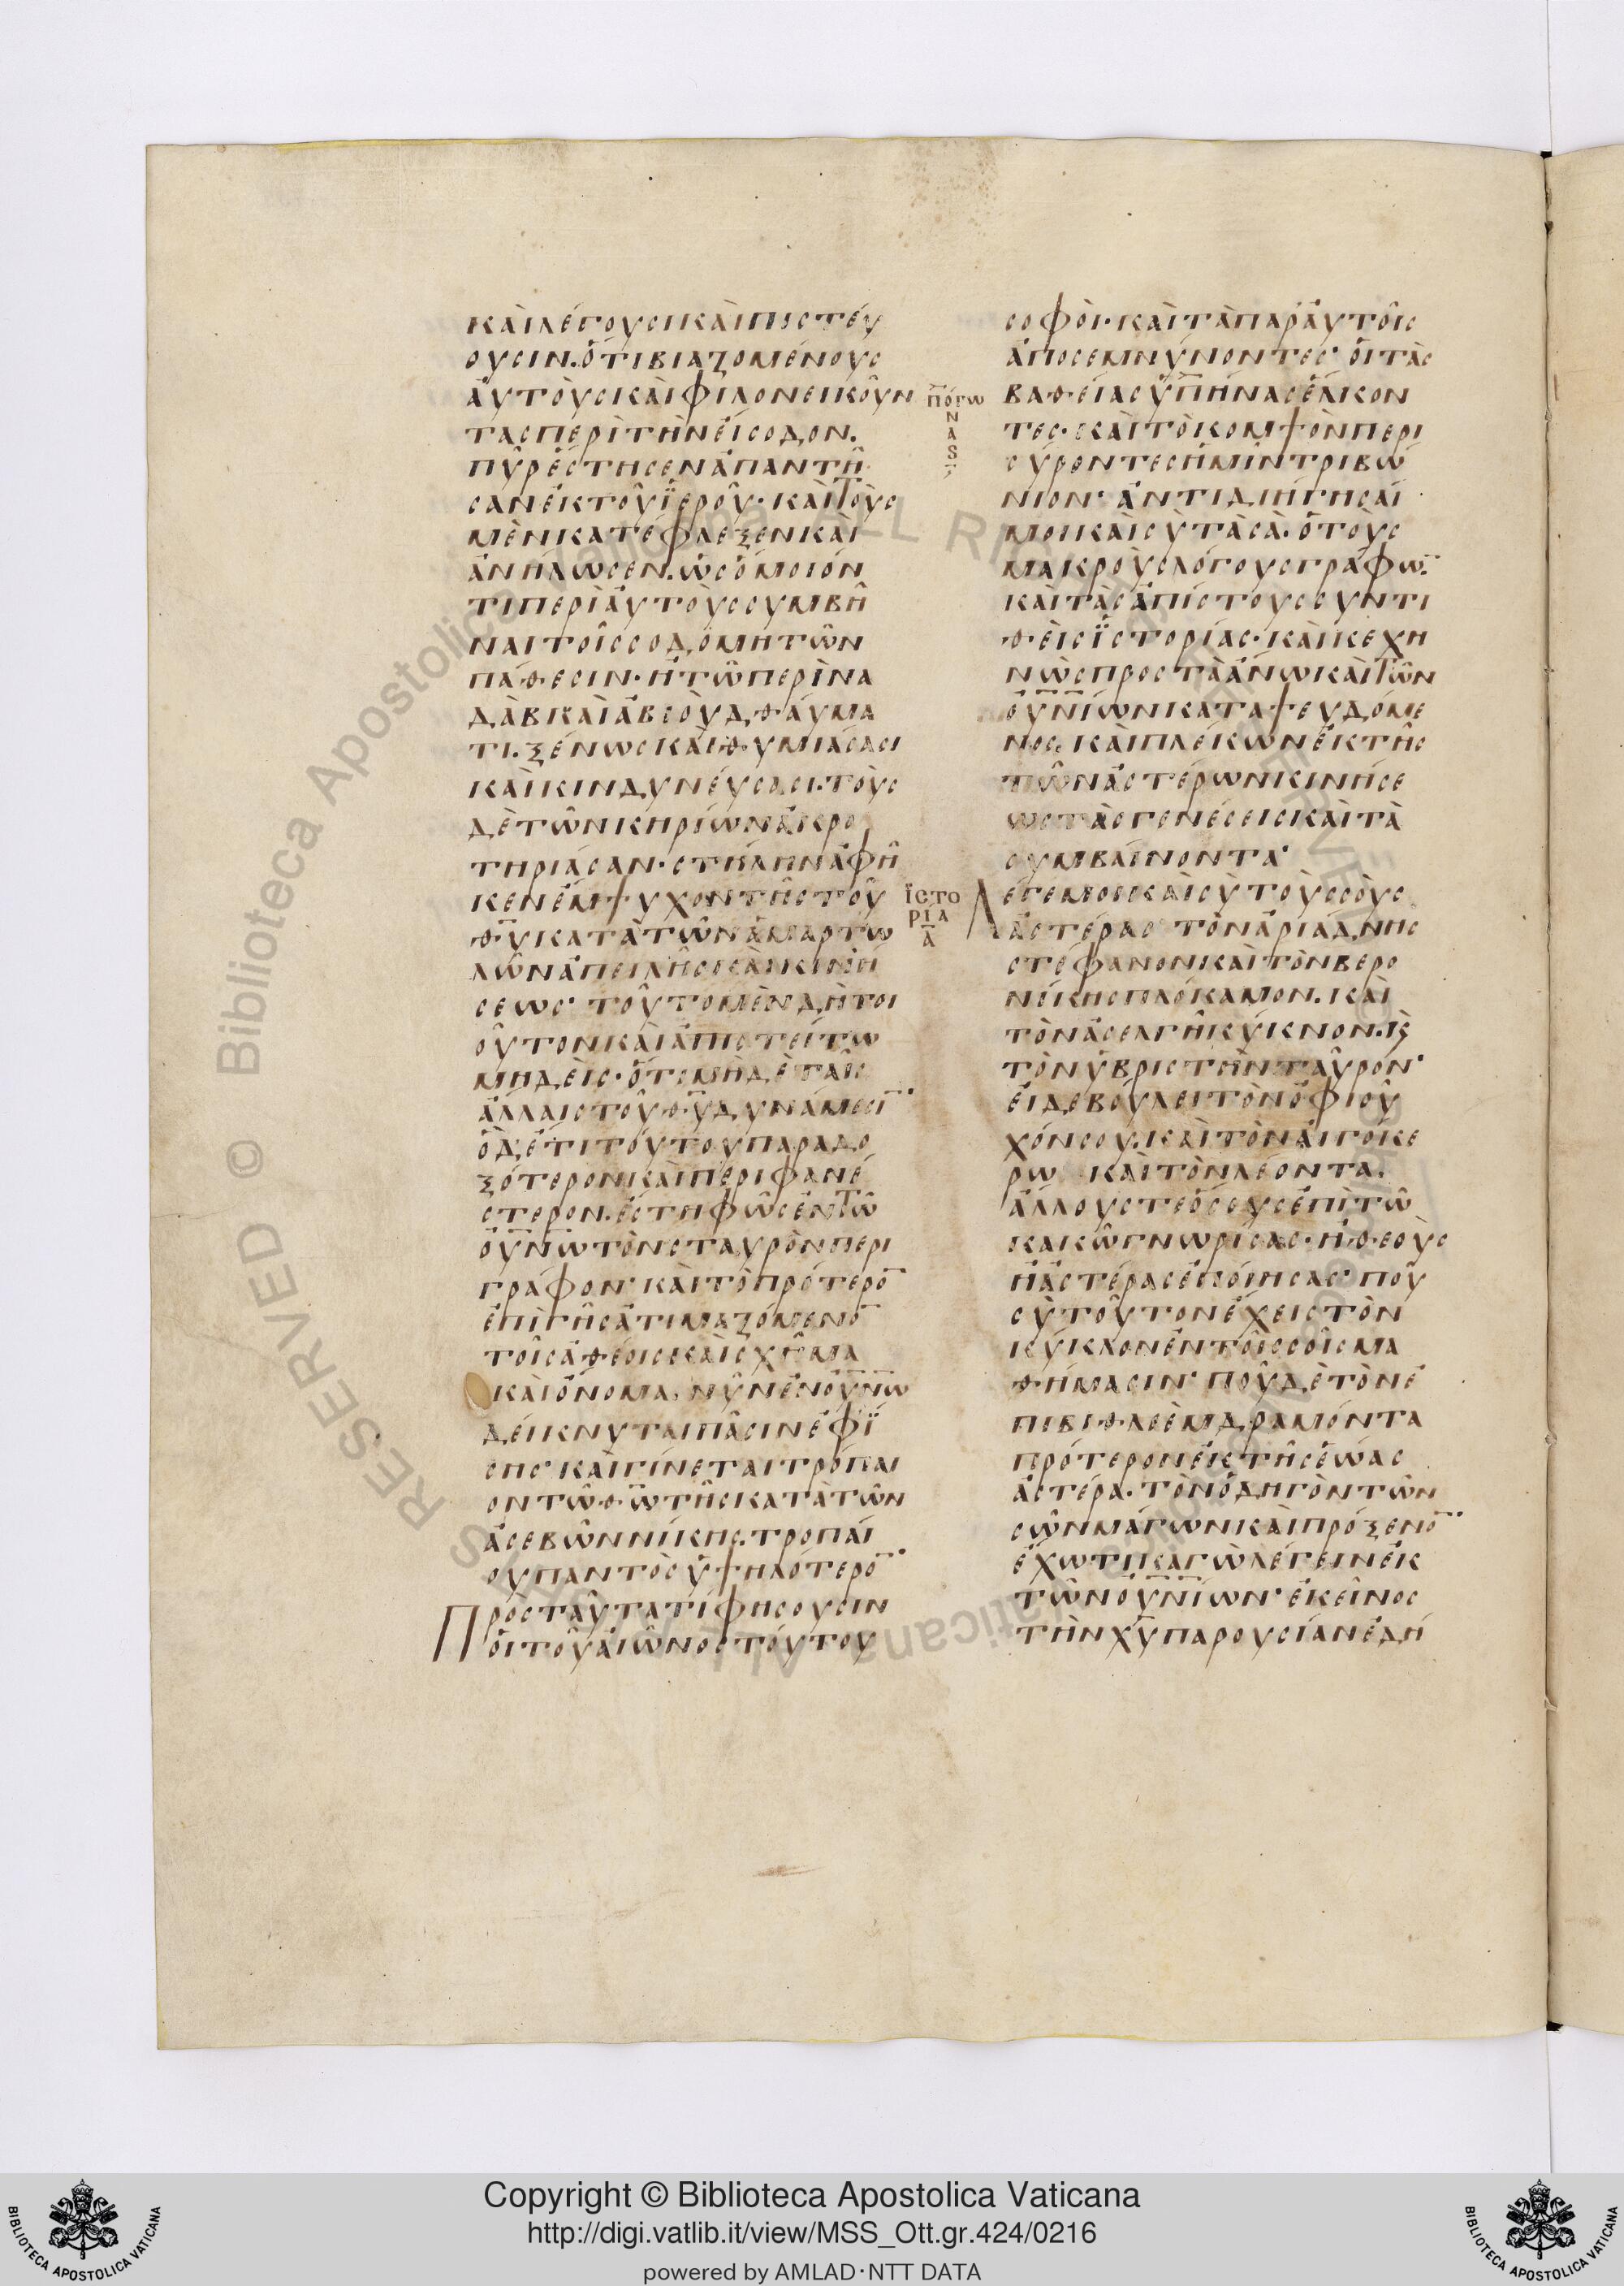 καὶ λέγουσι καὶ πιστεύ
ουσιν. ὅτι βιαζομένους
αὐτοὺς καὶ φιλονεικοῦν
τας περὶ τὴν εἴσοδον.
πῦρ ἔστησεν ἀπαντῆ
σαν ἐκ τοῦ ἱεροῦ· καὶ τοὺς
μὲν κατέφλεξεν καὶ
ἀνήλωσεν. ὡς ὅμοιόν
τι περὶ αὐτοὺς συμβῆ
ναι τοῖς σοδομητῶν
πάθεσιν· ἢ τῶ περὶ να
δὰβ καὶ ἀβιοὺδ θαύμα
τι. ξένως καὶ θυμιάσασι
καὶ κινδυνεύσασι. τοὺς
δὲ τῶν κηρίων ἀκρω
τηριάσαν· στήλην ἀφῆ
κεν ἔμψυχον τῆς τοῦ
θ̅υ̅ κατὰ τῶν ἁμαρτω
λῶν ἀπειλῆς καὶ κινή
σεως· τοῦτο μὲν δὴ τοι
οῦτον καὶ ἀπιστείτω
μηδείς· ὅτι μὴ δὲ ταῖς
ἄλλαις τοῦ θ̅υ̅ δυνάμεσι̅·
ὃ δ' ἔτι τούτου παραδο
ξότερον καὶ περιφανέ
στερον. ἔστη φῶς ἐν τῶ
ο̅υ̅ν̅ω̅ τὸν σταυρὸν περι
γράφον· καὶ τὸ πρότερο̅
ἐπὶ γῆς ἀτιμαζόμενο̅
τοῖς ἀθέοις καὶ σχῆμα
καὶ ὄνομα. νῦν ἐν ο̅υ̅ν̅ω̅
δείκνυται πᾶσιν ἐφ ἴ
σης· καὶ γίνεται τρόπαι
ον τῶ θ̅ω̅ τῆς κατὰ τῶν
ἀσεβῶν νίκης. τροπαί
ου παντὸς ὑψηλότερο̅·
Πρὸς ταῦτα τί φήσουσιν
οἱ τοῦ αἰῶνος τούτου
πόγω
Ν
Α
S
ἱστο
ρία
α̅
σοφοί· καὶ τὰ παρ' αὐτοῖς
ἀποσεμνύνοντες· οἱ τὰς
βαθείας ὑπήνας ἕλκον
τες· καὶ τὸ κομψὸν περι
σύροντες ἡμῖν τριβώ
νιον· ἀντιδιήγησαί
μοι καὶ σὺ τὰ σά. ὁ τοὺς
μακροὺς λόγους γράφω̅.
καὶ τὰς ἀπίστους συντι
θεὶς ἱστορίας· καὶ κεχη
νὼς προς τὰ ἄνω καὶ τῶν
ο̅υ̅ν̅ί̅ων καταψευδόμε
νος. καὶ πλέκων ἐκ τῆς
τῶν ἀστέρων κινήσε
ως τὰς γενέσεις καὶ τὰ
συμβαίνοντα·
Λέγε μοι καὶ σὺ τοὺς σοὺς
ἀστέρας· τὸν ἀριάδνης
στέφανον καὶ τὸν βερο
νίκης πλόκαμον. καὶ
τὸν ἀσελγῆ κύκνον. κ̀
τὸν ὑβριστὴν ταῦρον·
εἰ δὲ βούλει τὸν ὀφιοῦ
χόν σου. καὶ τὸν αἰγοίκε
ρω καὶ τὸν λέοντα.
ἄλλους τε ὅσους ἐπὶ τῶ
κακῶ γνωρίσας· ἢ θεοὺς
ἢ ἀστέρας ἐποίησας· ποῦ
σὺ τοῦτον ἔχεις τὸν
κύκλον ἐν τοῖς σοῖς μα
θήμασιν· ποῦ δὲ τὸν ἐ
πὶ βιθλεὲμ δραμόντα
πρότερον ἐκ τῆς ἑώας
ἀστέρα. τὸν ὁδηγὸν τῶν
σῶν μάγων καὶ πρόξενο̅·
ἔχω τι κἀγὼ λέγειν ἐκ
τῶν ο̅υ̅ν̅ί̅ων· ἐκεῖνος
τὴν χ̅υ̅ παρουσίαν ἐδή
Copyright © Biblioteca Apostolica Vaticana
http://digi.vatlib.it/view/MSS_Ott.gr.424/0216
powered by AMLAD·NTT DATA